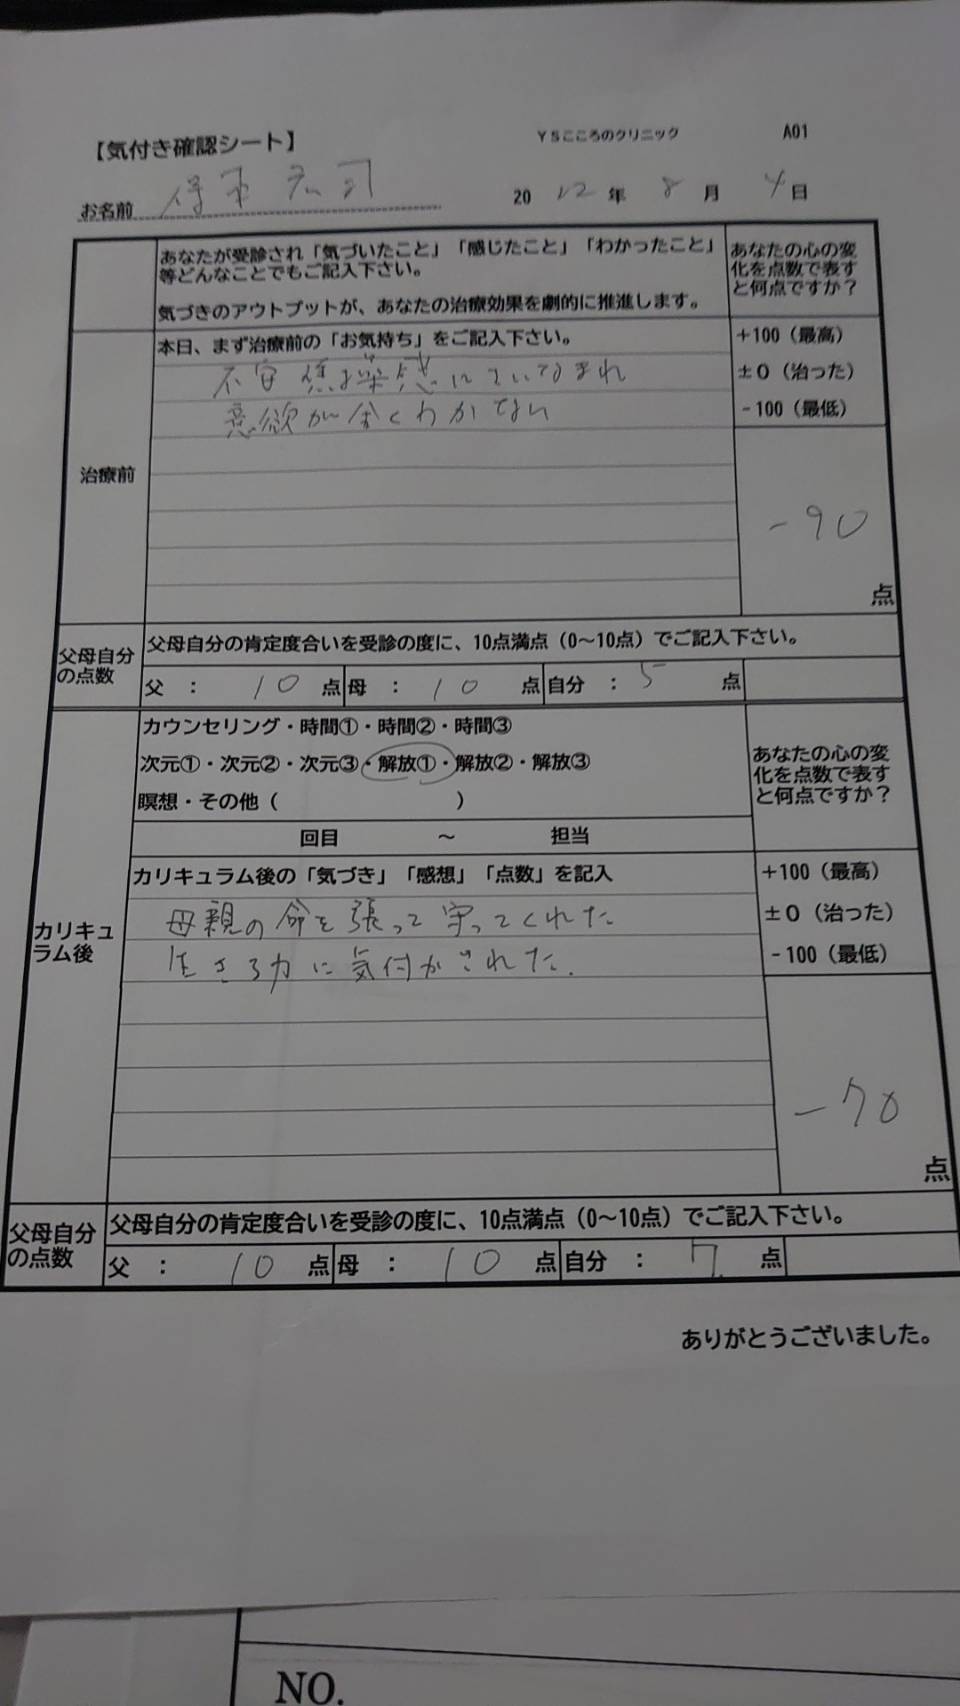 【気付き確認シート】 YSこころのクリニック A01
お名前 20 12 年 8 月 4 日
あなたが受診され「気づいたこと」「感じたこと」「わかったこと」
等どんなことでもご記入下さい。
気づきのアウトプットが、あなたの治療効果を劇的に推進します。
あなたの心の変
化を点数で表す
と何点ですか？
治療前
本日、まず治療前の「お気持ち」をご記入下さい。
不安 感にさいなまれ
意欲が全くわかない
+100（最高）
±0（治った）
-100（最低）
-90
点
父母自分
の点数
父母自分の肯定度合いを受診の度に、10点満点（0～10点）でご記入下さい。
父 ： 10 点 母 ： 10 点 自分 ： 5 点
カリキュ
ラム後
カウンセリング・時間①・時間②・時間③
次元①・次元②・次元③・解放①・解放②・解放③
瞑想・その他（ ）
回目 ～ 担当
あなたの心の変
化を点数で表す
と何点ですか？
カリキュラム後の「気づき」「感想」「点数」を記入
母親の命を張って守ってくれた
生きる力に気付かされた.
+100（最高）
±0（治った）
-100（最低）
-70
点
父母自分
の点数
父母自分の肯定度合いを受診の度に、10点満点（0～10点）でご記入下さい。
父 ： 10 点 母 ： 10 点 自分 ： 7. 点
ありがとうございました。
NO.